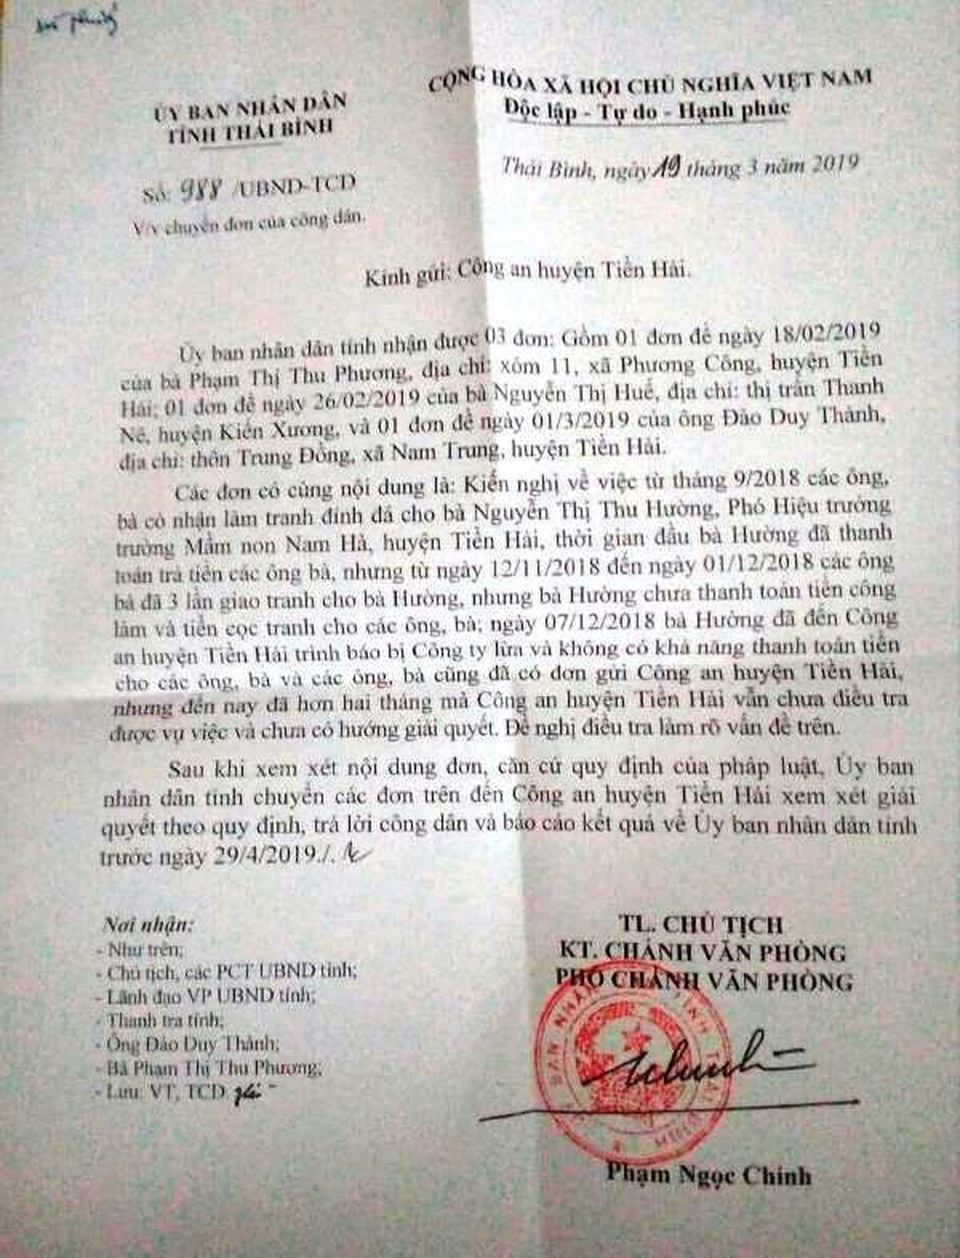 CỘNG HÒA XÃ HỘI CHỦ NGHĨA VIỆT NAM
Độc lập - Tự do - Hạnh phúc
ỦY BAN NHÂN DÂN
TỈNH THÁI BÌNH
Thái Bình, ngày 19 tháng 3 năm 2019
Số: 988 /UBND-TCD
V/v chuyển đơn của công dân.
Kính gửi: Công an huyện Tiền Hải.
Ủy ban nhân dân tỉnh nhận được 03 đơn: Gồm 01 đơn đề ngày 18/02/2019
của bà Phạm Thị Thu Phương, địa chỉ: xóm 11, xã Phương Công, huyện Tiền
Hải; 01 đơn đề ngày 26/02/2019 của bà Nguyễn Thị Huế, địa chỉ: thị trấn Thanh
Nê, huyện Kiến Xương, và 01 đơn đề ngày 01/3/2019 của ông Đào Duy Thành,
địa chỉ: thôn Trung Đồng, xã Nam Trung, huyện Tiền Hải.
Các đơn có cùng nội dung là: Kiến nghị về việc từ tháng 9/2018 các ông,
bà có nhận làm tranh đính đá cho bà Nguyễn Thị Thu Hường, Phó Hiệu trưởng
trường Mầm non Nam Hà, huyện Tiền Hải, thời gian đầu bà Hường đã thanh
toán trả tiền các ông bà, nhưng từ ngày 12/11/2018 đến ngày 01/12/2018 các ông
bà đã 3 lần giao tranh cho bà Hường, nhưng bà Hường chưa thanh toán tiền công
làm và tiền cọc tranh cho các ông, bà; ngày 07/12/2018 bà Hường đã đến Công
an huyện Tiền Hải trình báo bị Công ty lừa và không có khả năng thanh toán tiền
cho các ông, bà và các ông, bà cũng đã có đơn gửi Công an huyện Tiền Hải,
nhưng đến nay đã hơn hai tháng mà Công an huyện Tiền Hải vẫn chưa điều tra
được vụ việc và chưa có hướng giải quyết. Đề nghị điều tra làm rõ vấn đề trên.
Sau khi xem xét nội dung đơn, căn cứ quy định của pháp luật, Ủy ban
nhân dân tỉnh chuyển các đơn trên đến Công an huyện Tiền Hải xem xét giải
quyết theo quy định, trả lời công dân và báo cáo kết quả về Ủy ban nhân dân tỉnh
trước ngày 29/4/2019./.
Nơi nhận:
- Như trên;
- Chủ tịch, các PCT UBND tỉnh;
- Lãnh đạo VP UBND tỉnh;
- Thanh tra tỉnh;
- Ông Đào Duy Thành;
- Bà Phạm Thị Thu Phương;
- Lưu: VT, TCD.
TL. CHỦ TỊCH
KT. CHÁNH VĂN PHÒNG
PHÓ CHÁNH VĂN PHÒNG
Phạm Ngọc Chính